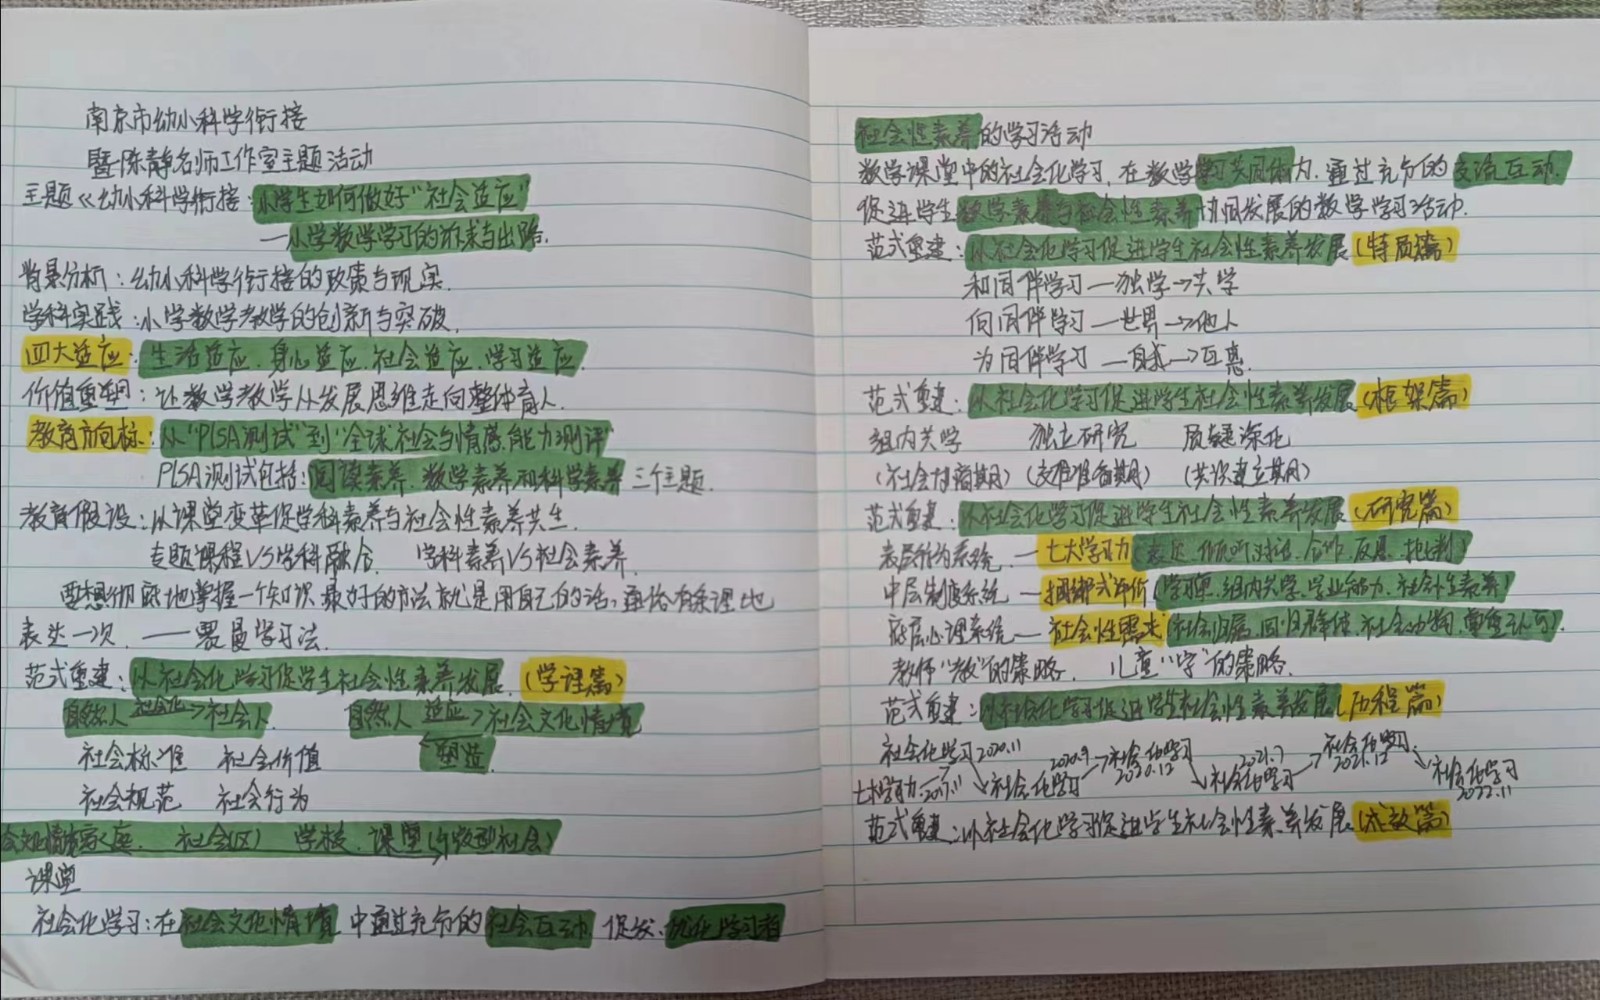 南京市幼小科学衔接
暨陈静名师工作室主题活动
主题《幼小科学衔接:小学生如何做好"社会适应"
——小学数学学习的诉求与出路.
背景分析:幼小科学衔接的政策与现实.
学科实践:小学数学教学的创新与突破.
四大适应:生活适应.身心适应.社会适应.学习适应.
价值重塑:让数学教学从发展思维走向整体育人.
教育方向标:从"PISA测试"到"全球社会与情感能力测评"
PISA测试包括:阅读素养.数学素养和科学素养三个主题.
教育假设:以课堂变革促学科素养与社会性素养共生.
专题课程VS学科融合. 学科素养VS社会素养.
要想彻底地掌握一个知识最好的方法就是用自己的话,通俗有条理地
表达一次.——费曼学习法.
范式重建:从社会化学习促学生社会性素养发展.(学理篇)
自然人 社会化→社会人. 自然人 适应→社会文化情境
塑造.
社会标准 社会价值
社会规范 社会行为
社会(区) 学校.课堂(年级型社会)
课堂
社会化学习:在社会文化情境中通过充分的社会互动.促发、优化学习者
社会性素养的学习活动
数学课堂中的社会化学习,在数学学习共同体内.通过充分的交流互动.
促进学生数学素养与社会性素养协同发展的数学学习活动.
范式重建:从社会化学习促进学生社会性素养发展(特质篇)
和同伴学习—独学→共学
向同伴学习—世界→他人
为同伴学习—自我→互惠.
范式重建:从社会化学习促进学生社会性素养发展(框架篇)
组内共学 独立研究 质疑深化
(交往准备期) (共识建立期)
范式重建:从社会化学习促进学生社会性素养发展(研究篇)
表层行为系统—七大学习力(表达.倾听.对话.合作.反思.批判)
中层制度系统—捆绑式评价(学习单.组内共学.学业能力.社会性素养)
底层心理系统—社会性需求(社会归属.回归群体.社会动物.尊重认可).
教师"教"的策略. 儿童"学"的策略.
范式重建:从社会化学习促进学生社会性素养发展(历程篇)
社会化学习2020.11 2020.9 社会化学习2020.12 2021.7 社会化学习2021.12
七大学习力—2017.11 →社会化学习 →社会化学习 →社会化学习2022.11
范式重建:以社会化学习促进学生社会性素养发展(成效篇)